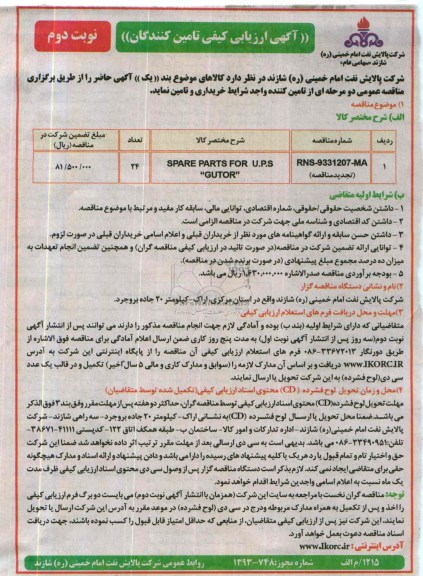 نوبت دوم
(( آگهی ارزیابی کیفی تامین کنندگان ))
شرکت پالایش نفت امام خمینی (ره)
شازند «سهامی عام»
شرکت پالایش نفت امام خمینی (ره) شازند در نظر دارد کالاهای موضوع بند (( یک )) آگهی حاضر را از طریق برگزاری
مناقصه عمومی دو مرحله ای از تامین کننده واجد شرایط خریداری و تامین نماید.
۱) موضوع مناقصه
الف) شرح مختصر کالا
ردیف شماره مناقصه شرح مختصر کالا تعداد مبلغ تضمین شرکت در مناقصه (ریال)
۱ RNS-9331207-MA (تجدید مناقصه) SPARE PARTS FOR U.P.S "GUTOR" ۲۴ ۸۱/۵۰۰/۰۰۰
ب) شرایط اولیه متقاضی
۱ - داشتن شخصیت حقوقی/حقوقی، شماره اقتصادی، توانایی مالی، سابقه کار مفید و مرتبط با موضوع مناقصه.
۲ - داشتن کد اقتصادی و شناسه ملی جهت شرکت در مناقصه الزامی است.
۳ - داشتن حسن سابقه و ارائه گواهینامه های مورد نظر از خریداران قبلی و اعلام اسامی خریداران قبلی در صورت لزوم.
۴ - توانایی ارائه تضمین شرکت در مناقصه (در صورت تائید در ارزیابی کیفی مناقصه گران) و همچنین تضمین انجام تعهدات به
میزان ده درصد مجموع مبلغ پیشنهادی (در صورت برنده شدن در مناقصه).
۵ - بودجه برآوردی مناقصه صدرالاشاره ۱,۶۳۰,۰۰۰,۰۰۰ ریال می باشد.
۲) نام و نشانی دستگاه مناقصه گزار
شرکت پالایش نفت امام خمینی (ره) شازند واقع در استان مرکزی، اراک - کیلومتر ۲۰ جاده بروجرد.
۳) مهلت و محل دریافت فرم های استعلام ارزیابی کیفی
متقاضیانی که دارای شرایط اولیه (بند ب) بوده و آمادگی لازم جهت انجام مناقصه مذکور را دارند می توانند پس از انتشار آگهی
نوبت دوم (سه روز پس از انتشار آگهی نوبت اول) به مدت پنج روز کاری ضمن ارسال اعلام آمادگی برای مناقصه فوق الاشاره از
طریق دورنگار ۳۳۶۷۲۰۱۳-۰۸۶ فرم های استعلام ارزیابی کیفی آن مناقصه را از پایگاه اینترنتی این شرکت به آدرس
WWW.IKORC.IR دریافت و بر اساس آن مدارک لازمه را (سوابق و مدارک کاری و مالی ۵ سال آخیر) تکمیل و در قالب یک عدد
سی دی (لوح فشرده) به این شرکت تحویل یا ارسال نمایند.
۴) محل و زمان تحویل لوح فشرده ( CD ) محتوی اسناد ارزیابی کیفی (تکمیل شده توسط متقاضیان)
مهلت تحویل لوح فشرده (CD) محتوی اسناد ارزیابی کیفی توسط مناقصه گران، حداکثر دو هفته پس از مهلت مقرر و فوق بند ۳ فوق الذکر
می باشد. ضمنا محل تحویل یا ارسال لوح فشرده (CD) به نشانی اراک - کیلومتر ۲۰ جاده بروجرد - سه راهی شازند - شرکت
پالایش نفت امام خمینی (ره) شازند - اداره تدارکات و امور کالا - ساختمان ب - طبقه همکف اتاق ۱۲۲ - کدپستی ۴۱۱۱۱-۳۸۶۷۱
تلفن: ۳۳۴۹۰۹۵۱-۰۸۶ می باشد. بدیهی است به سی دی ارسالی بعد از مهلت مقرر ترتیب اثر داده نخواهد شد ضمنا این شرکت
حق و اختیار تام و تمام قبول یا رد هر یک یا کلیه پیشنهاد های رسیده را دارا می باشد و دادن پیشنهاد و ارائه اسناد و مدارک هیچگونه
حقی برای متقاضی ایجاد نمی کند. لازم بذکر است دستگاه مناقصه گزار پس از وصول سی دی محتوی اسناد ارزیابی کیفی ظرف مدت
یک ماه نسبت به اعلام اسامی واجدین شرایط اقدام خواهد نمود.
توجه: مناقصه گران نخست با مراجعه به سایت این شرکت (همزمان با انتشار آگهی نوبت دوم) می بایست دو برگ فرم ارزیابی کیفی
را اخذ و پس از تکمیل به همراه مدارک مربوطه و درج در سی دی (لوح فشرده) در موعد مقرر به آدرس این شرکت ارسال یا تحویل
نمایند، این شرکت نیز پس از ارزیابی کیفی متقاضیان، از منابعی که حداقل امتیاز قابل قبول را کسب نموده باشند، جهت دریافت
اسناد مناقصه دعوت بعمل خواهد آورد.
آدرس اینترنتی: www.Ikorc.ir
۱۲۱۵/م الف شماره مجوز: ۷۴۸-۱۳۹۳ روابط عمومی شرکت پالایش نفت امام خمینی (ره) شازند